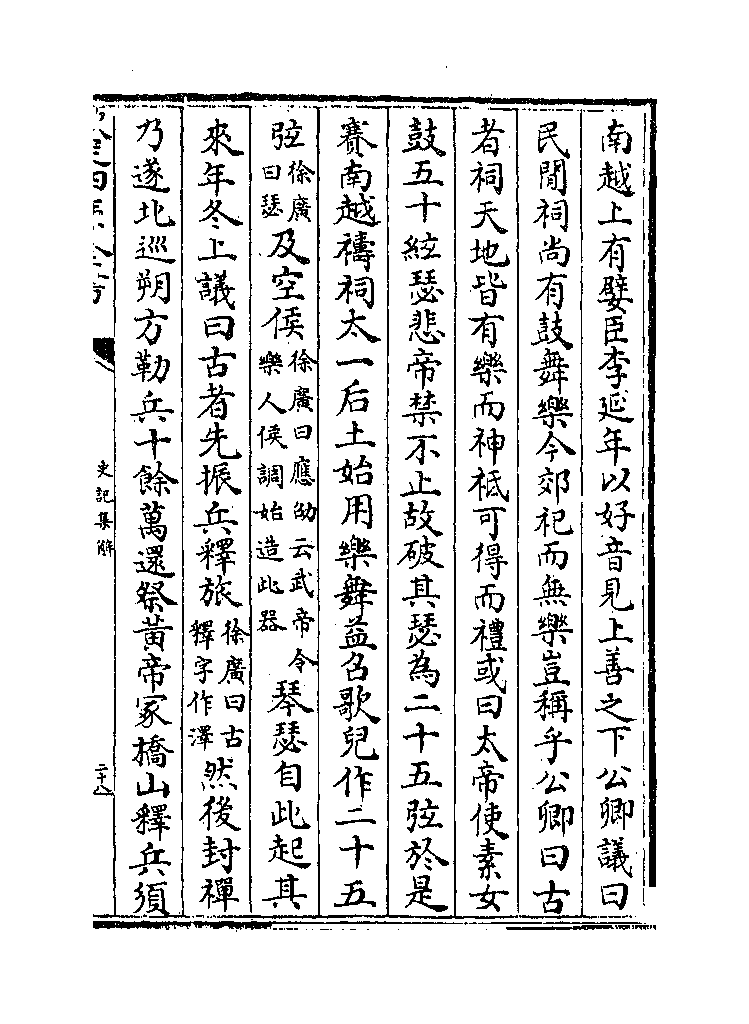 南越上有嬖臣李延年以好音見上善之下公卿議曰
民間祠尚有鼓舞樂今郊祀而無樂豈稱乎公卿曰古
者祠天地皆有樂而神祇可得而禮或曰太帝使素女
鼓五十絃瑟悲帝禁不止故破其瑟為二十五弦於是
賽南越禱祠太一后土始用樂舞益召歌兒作二十五
弦徐廣曰瑟及空侯徐廣曰應劭云武帝令樂人侯調始造此器琴瑟自此起其
來年冬上議曰古者先振兵釋旅徐廣曰古釋字作澤然後封禪
乃遂北巡朔方勒兵十餘萬還祭黃帝冢橋山釋兵須
史記集解
二十八